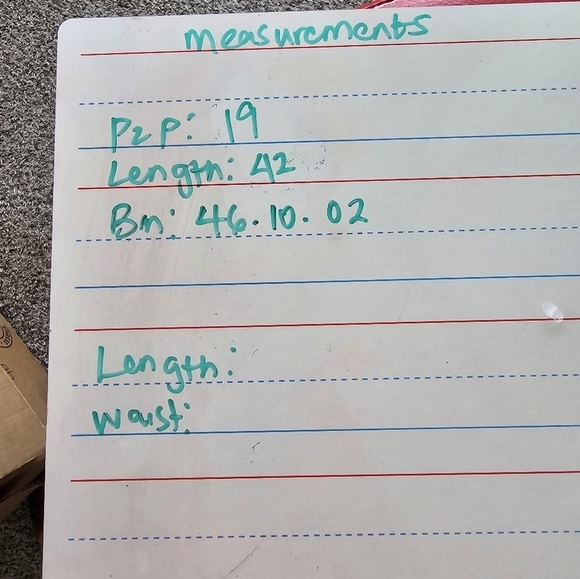 measurements
P2P: 19
Length: 42
Bn: 46.10.02
Length:
Waist: